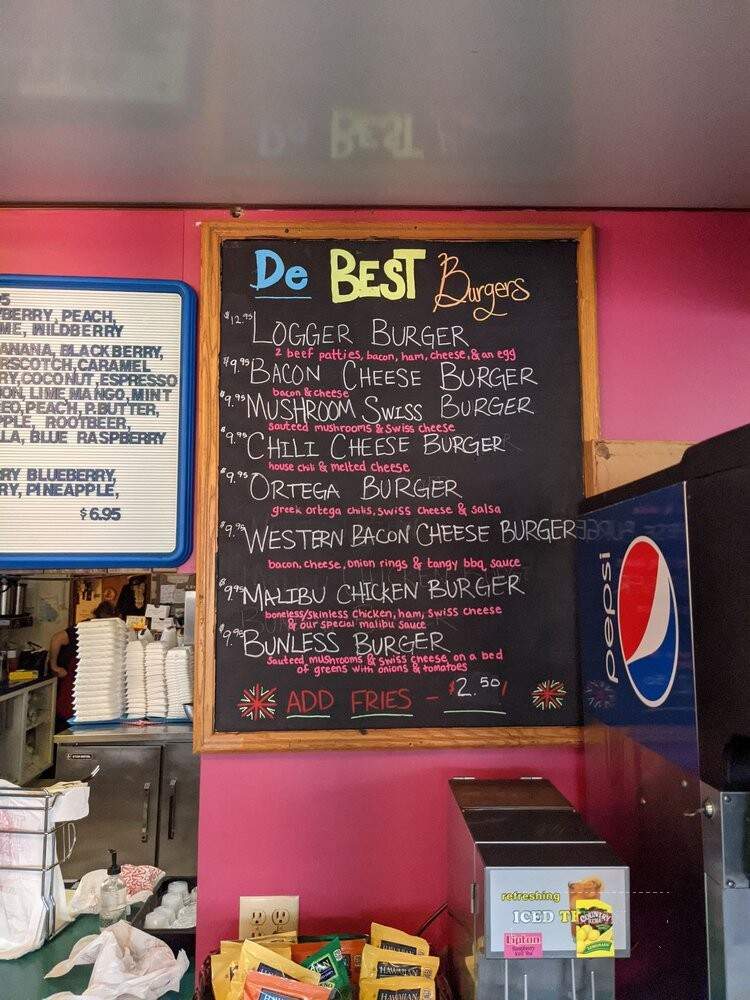 De BEST Burgers
$12.95 LOGGER BURGER
2 beef patties, bacon, ham, cheese, & an egg
$9.95 BACON CHEESE BURGER
bacon & cheese
$9.95 MUSHROOM SWISS BURGER
sauteed mushrooms & swiss cheese
$9.95 CHILI CHEESE BURGER
house chili & melted cheese
$9.95 ORTEGA BURGER
greek ortega chilis, swiss cheese & salsa
$9.95 WESTERN BACON CHEESE BURGER
bacon, cheese, onion rings & tangy bbq sauce
$9.95 MALIBU CHICKEN BURGER
boneless/skinless chicken, ham, swiss cheese
& our special malibu sauce
$9.95 BUNLESS BURGER
sauteed mushrooms & swiss cheese on a bed
of greens with onions & tomatoes
ADD FRIES - $2.50
5
BERRY, PEACH,
ME, WILDBERRY
ANANA, BLACKBERRY,
RSCOTCH, CARAMEL
RY, COCONUT, ESPRESSO
ON, LIME, MANGO, MINT
EO, PEACH, P.BUTTER,
PPLE, ROOTBEER,
LLA, BLUE RASPBERRY
RY BLUEBERRY,
RY, PINEAPPLE,
$6.95
pepsi
refreshing
ICED TE
Lipton
COUNTRY
TIME
LEMONADE
HAWAIIAN
HAWAIIAN
HAWAIIAN
HAWAIIAN